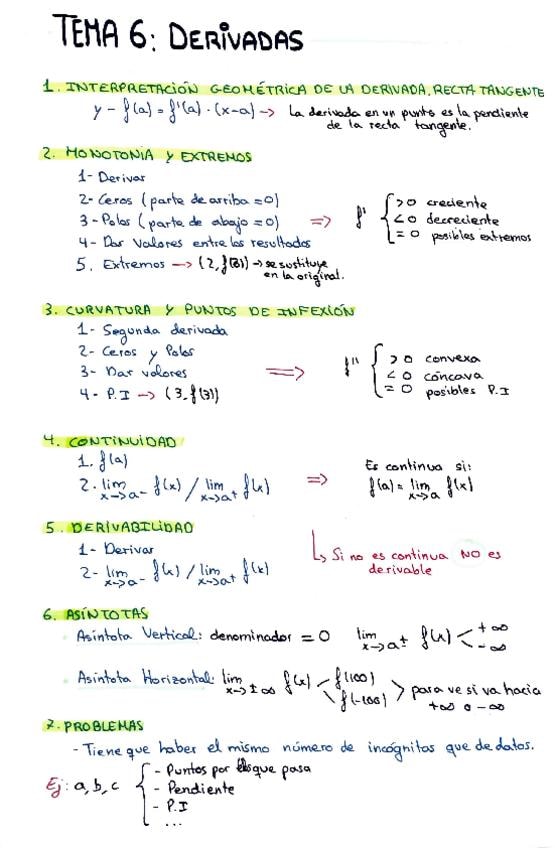 TEMA 6: DERIVADAS
1. INTERPRETACIÓN GEOMÉTRICA DE LA DERIVADA. RECTA TANGENTE
y - f(a) = f'(a) · (x-a) → La derivada en un punto es la pendiente
de la recta tangente.
2. MONOTONIA Y EXTREMOS
1- Derivar
2- Ceros (parte de arriba = 0)
3- Polos (parte de abajo = 0) ⇒ f' { > 0 creciente
< 0 decreciente
= 0 posibles extremos
4- Dar Valores entre los resultados
5. Extremos → (2, f(8)) → se sustituye
en la original.
3. CURVATURA Y PUNTOS DE INFEXIÓN
1- Segunda derivada
2- Ceros y Polos
3- Dar valores ⇒ f'' { > 0 convexa
< 0 cóncava
= 0 posibles P.I
4- P.I → (3, f(3))
4. CONTINUIDAD
1. f(a)
2. lim x→a- f(x) / lim x→a+ f(x) ⇒ Es continua si:
f(a) = lim x→a f(x)
5. DERIVABILIDAD
1- Derivar
2- lim x→a- f(x) / lim x→a+ f(x)
↳ Si no es continua NO es
derivable
6. ASÍNTOTAS
· Asíntota Vertical: denominador = 0 lim x→a± f(x) < +∞
-∞
· Asíntota Horizontal: lim x→±∞ f(x) < f(100)
f(-100) > para ve si va hacia
+∞ o -∞
7. PROBLEMAS
- Tiene que haber el mismo número de incógnitas que de datos.
Ej: a, b, c { - Puntos por los que pasa
- Pendiente
- P.I
...